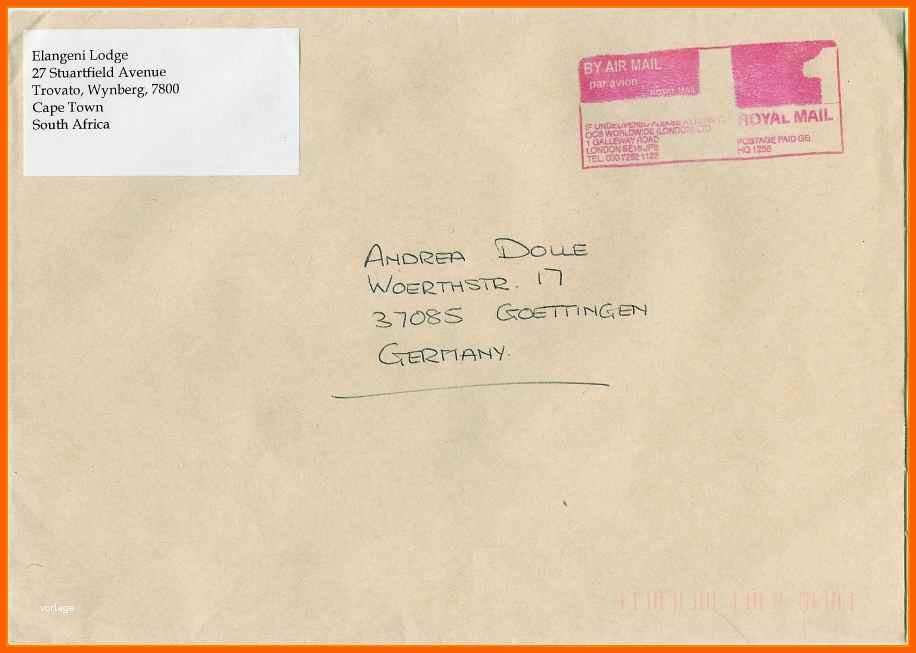 Elangeni Lodge
27 Stuartfield Avenue
Trovato, Wynberg, 7800
Cape Town
South Africa
BY AIR MAIL
par avion
ROYAL MAIL
1
ROYAL MAIL
POSTAGE PAID GB
HQ 1256
IF UNDELIVERED PLEASE RETURN TO
OCS WORLDWIDE (LONDON) LTD
1 GALLEWAY ROAD
LONDON SE16
TEL:
ANDREA DOLLE
WOERTHSTR. 17
37085 GOETTINGEN
GERMANY.
vorlage